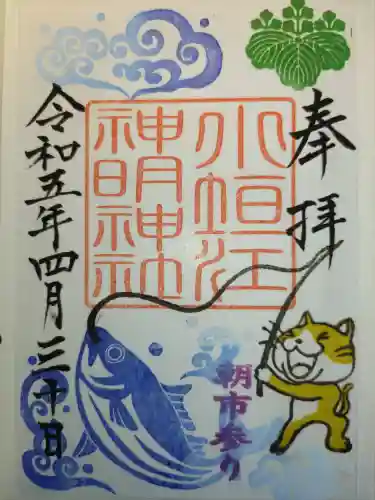 奉拝
小垣江
神明神社
令和五年四月三十日
朝市参り